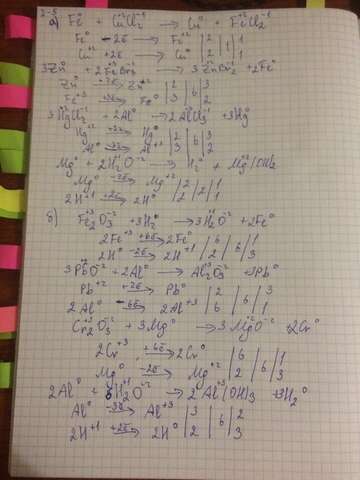 2-5
а) Fe⁰ + Cu⁺²Cl₂⁻¹ → Cu⁰ + Fe⁺²Cl₂⁻¹
Fe⁰ -2ē→ Fe⁺² | 2 | | 1
Cu⁺² +2ē→ Cu⁰ | 2 | 1 | 1
3Zn⁰ + 2Fe⁺³Br₃⁻¹ → 3Zn⁺²Br₂⁻¹ + 2Fe⁰
Zn⁰ -2ē→ Zn⁺² | 2 | 6 | 3
Fe⁺³ +3ē→ Fe⁰ | 3 | | 2
3Hg⁺²Cl₂⁻¹ + 2Al⁰ → 2Al⁺³Cl₃⁻¹ + 3Hg⁰
Hg⁺² +2ē→ Hg⁰ | 2 | 6 | 3
Al⁰ -3ē→ Al⁺³ | 3 | | 2
Mg⁰ + 2H₂⁺¹O⁻² → H₂⁰ + Mg⁺²(OH)₂
Mg⁰ -2ē→ Mg⁺² | 2 | | 1
2H⁺¹ +2ē→ 2H⁰ | 2 | 2 | 1
б) Fe₂⁺³O₃⁻² + 3H₂⁰ → 3H₂⁺¹O⁻² + 2Fe⁰
2Fe⁺³ +6ē→ 2Fe⁰ | 6 | 6 | 1
2H⁰ -2ē→ 2H⁺¹ | 2 | | 3
3Pb⁺²O⁻² + 2Al⁰ → Al₂⁺³O₃⁻² + 3Pb⁰
Pb⁺² +2ē→ Pb⁰ | 2 | | 3
2Al⁰ -6ē→ 2Al⁺³ | 6 | 6 | 1
Cr₂⁺³O₃⁻² + 3Mg⁰ → 3Mg⁺²O⁻² + 2Cr⁰
2Cr⁺³ +6ē→ 2Cr⁰ | 6 | | 1
Mg⁰ -2ē→ Mg⁺² | 2 | 6 | 3
2Al⁰ + 6H₂⁺¹O⁻² → 2Al⁺³(OH)₃ + 3H₂⁰
Al⁰ -3ē→ Al⁺³ | 3 | 6 | 2
2H⁺¹ +2ē→ 2H⁰ | 2 | | 3